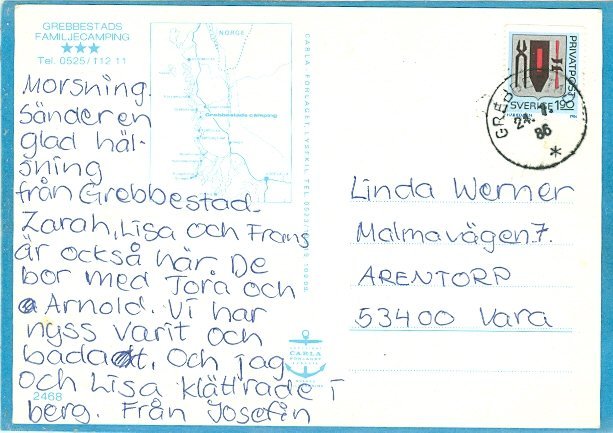 GREBBESTADS
FAMILJECAMPING
Tel. 0525/112 11
NORGE
Grebbestads camping
CARLA FÖRLAGET LYSEKIL TEL 0523/
PRIVATPOST
SVERIGE 190
GREB
24. 7.
86
Morsning.
Sänder en
glad häl-
sning
från Grebbestad.
Zarah, Lisa och Frans
är också här. De
bor med Tora och
Arnold. Vi har
nyss varit och
badat. Och jag
och Lisa klättrade i
berg. Från Josefin
2468
CARLA
FÖRLAGET
Linda Werner
Malmavägen 7.
ARENTORP
53400 Vara